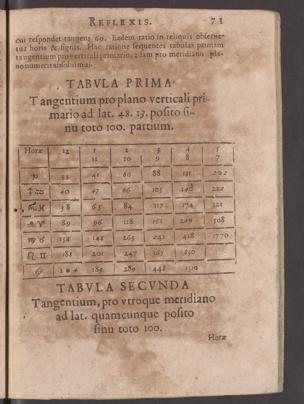 REFLEXIS. 71
cui respondet tangens 60. Eadem ratio in reliquis obserue-
tur horis & signis. Hac ratione sequentes tabulas primam
tangentium pro verticali primario, 2dam pro meridiano pla-
no numeris absoluimus.
TABVLA PRIMA
Tangentium pro plano verticali pri-
mario ad lat. 48. 13. posito si-
nu toto 100. partium.
Horæ 12 1 2 3 4 5
11 10 9 8 7
♑ 35 41 60 88 131 202
♐ ♒ 40 47 66 105 222
♏ ♓ 58 65 84 117 174 321
♎ ♈ 89 96 118 161 249 508
♍ ♉ 134 145 265 242 418 1770
♌ ♊ 188 201 247 363 830
♋ 189 289 448 1310
TABVLA SECVNDA
Tangentium, pro vtroque meridiano
ad lat. quamcunque posito
sinu toto 100.
Horæ